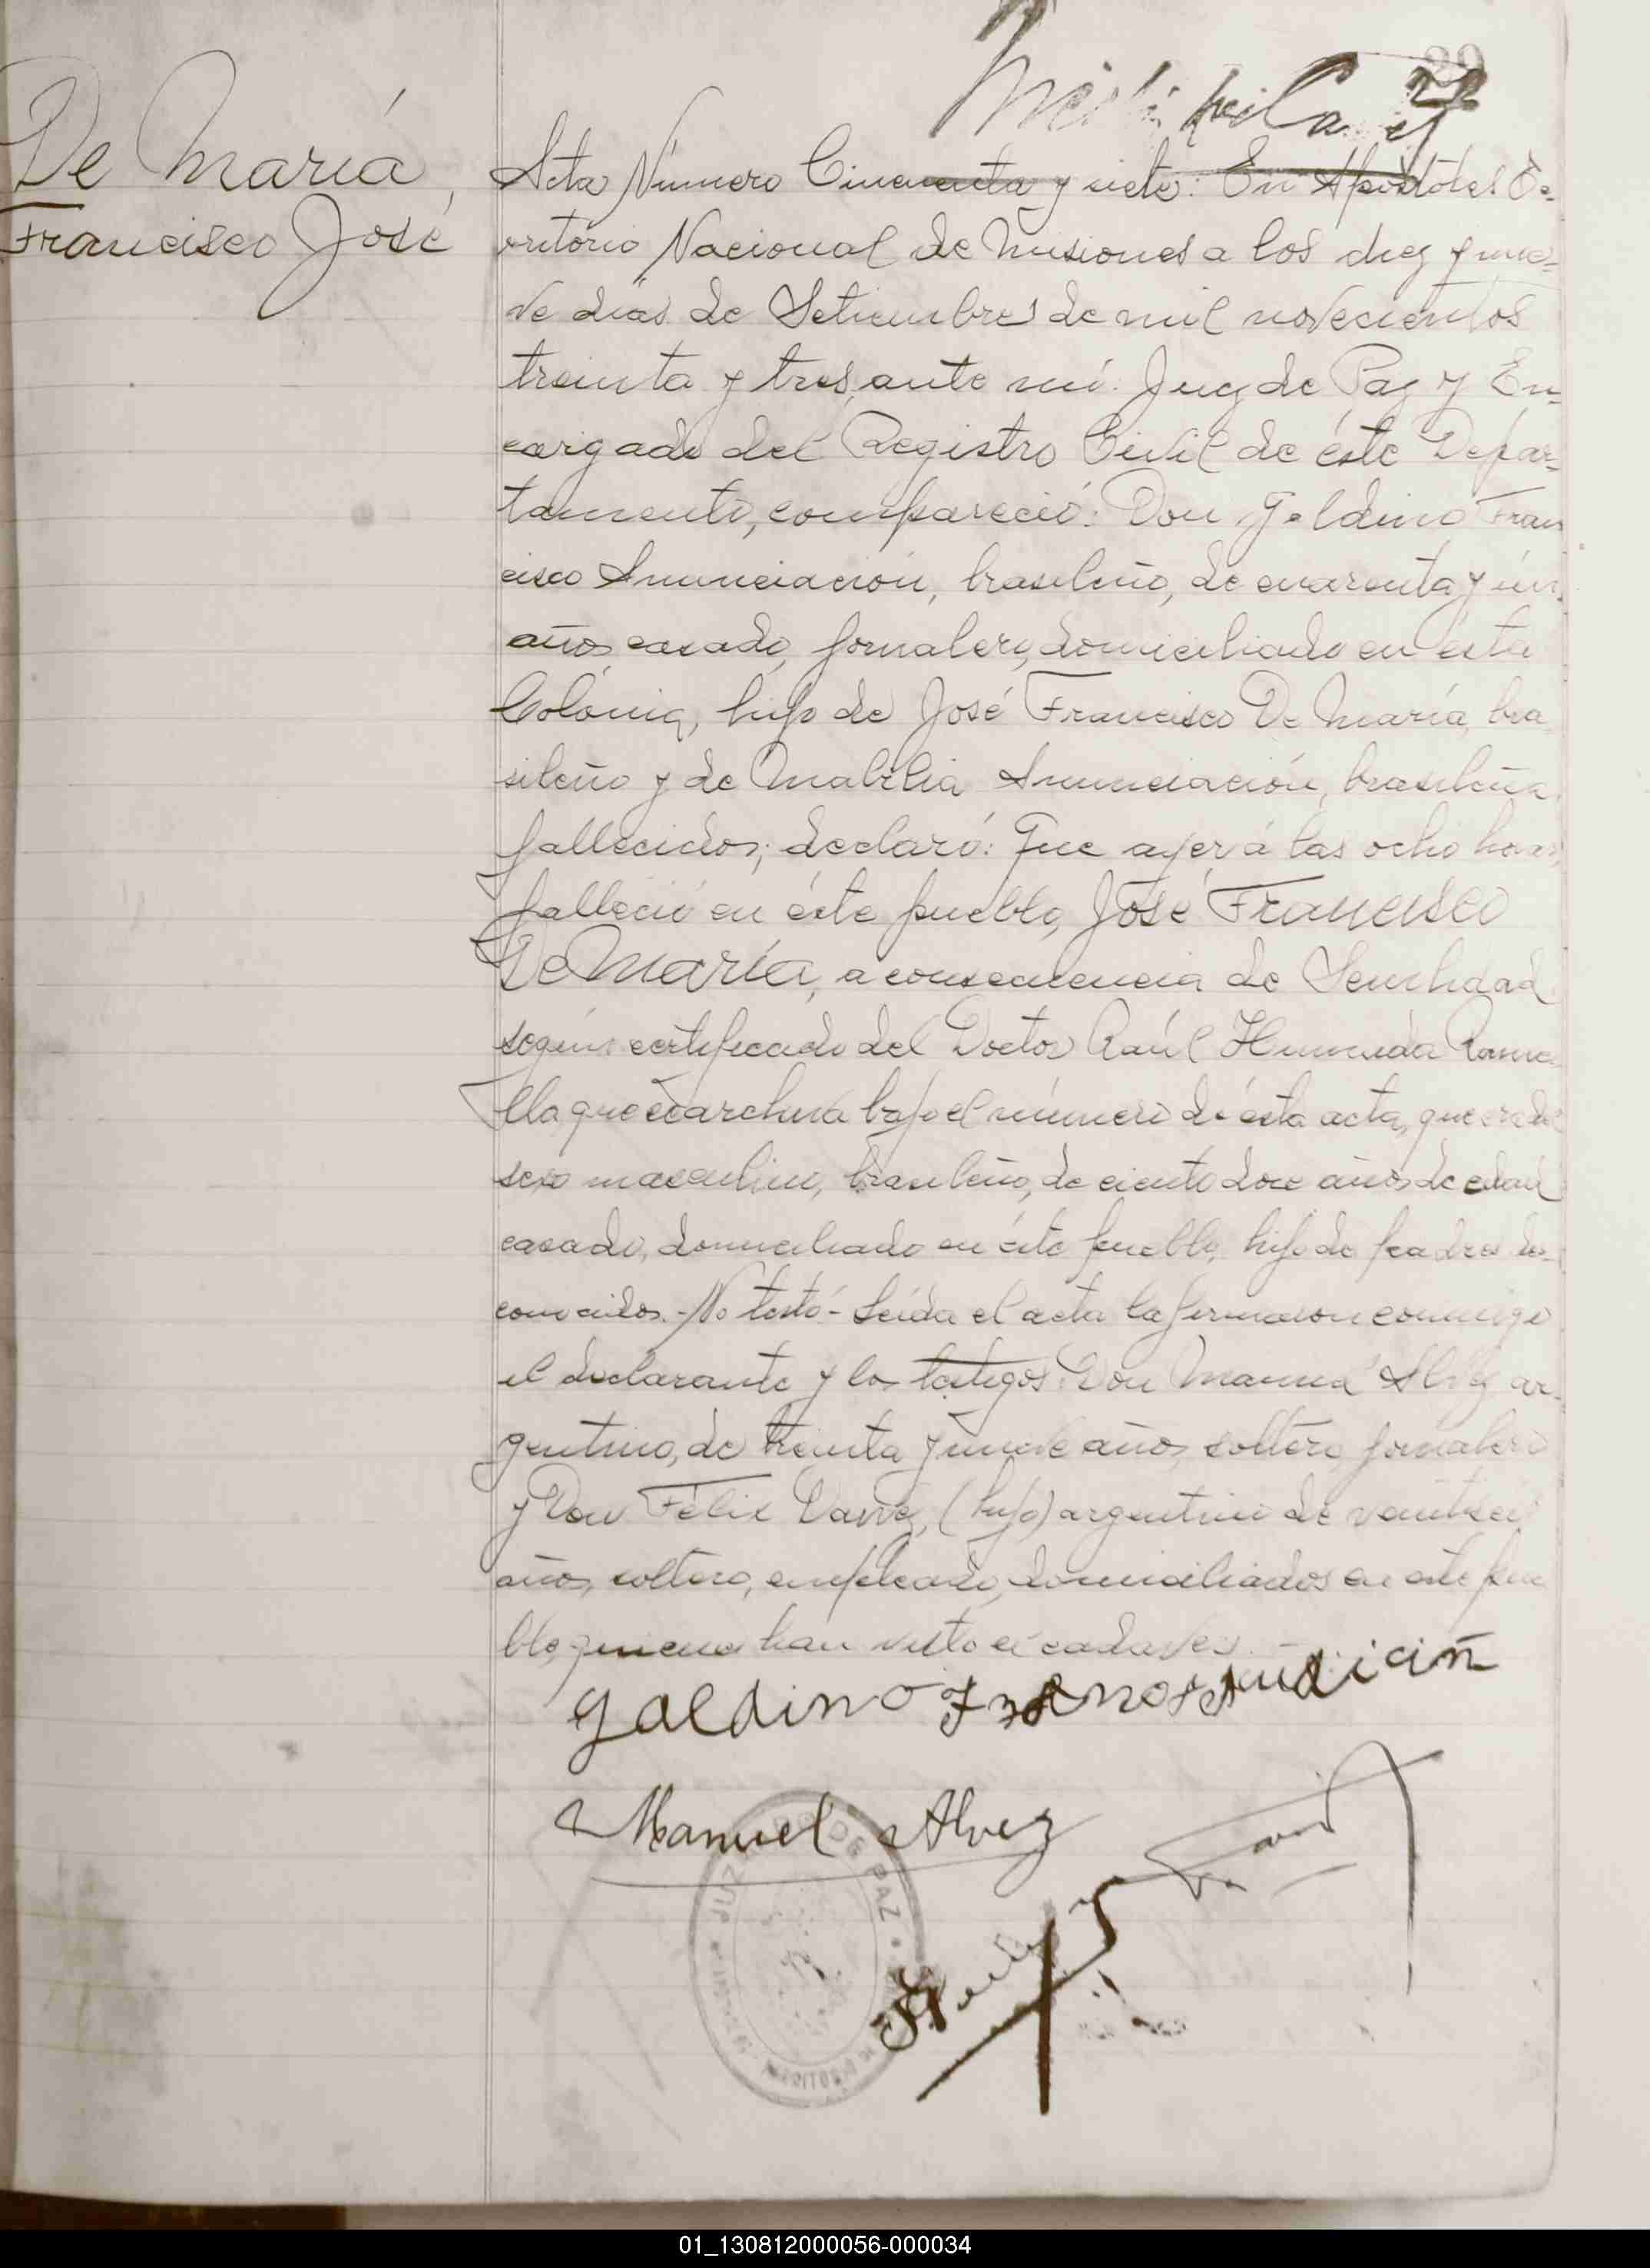 De María,
Francisco José
29
Acta Número Cincuenta y siete: En Apóstoles Te=
rritorio Nacional de Misiones a los diez y nue=
ve días de Setiembre de mil novecientos
treinta y tres, ante mí. Juez de Paz y En=
cargado del Registro Civil de éste Depar=
tamento, compareció: Don Galdino Fran
cisco Anunciación, brasileño, de cuarenta y un
años, casado, jornalero, domiciliado en ésta
Colónia, hijo de José Francisco De María, bra
sileño y de Mabilia Anunciación, brasileña,
fallecidos; declaró: Que ayer á las ocho horas,
falleció en éste pueblo, José Francisco
De María, a consecuencia de Senilidad
según certificado del Doctor Raúl
lla que se archiva bajo el número de ésta acta, que era de
sexo masculino, brasileño, de ciento doce años de edad
casado, domiciliado en éste pueblo, hijo de padres des=
conocidos.- No testó- Leída el acta la firmaron conmigo
el declarante y los testigos Don Manuel Alvez ar=
gentino, de treinta y nueve años, soltero, jornalero
y Don Félix (hijo) argentino de veintiseis
años, soltero, empleado, domiciliados en este pue
blo, quienes han visto el cadaver.
Galdino
Manuel Alvez
JUZGADO DE PAZ
01_130812000056-000034